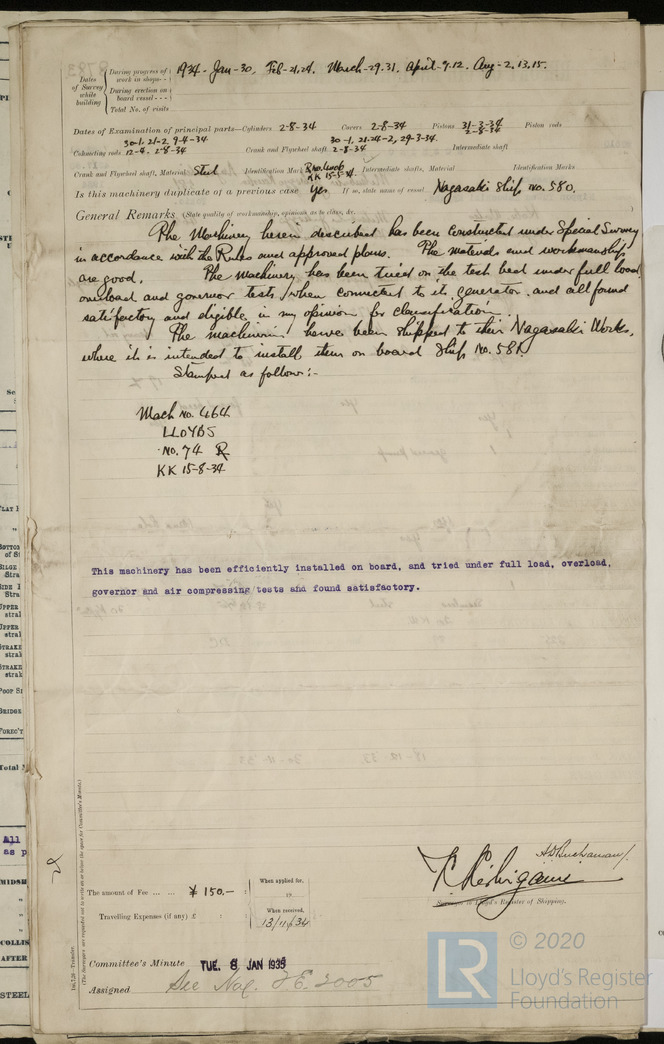 Dates of Survey while building
During progress of work in shops - - 1934 - Jan-30, Feb-21,24, March-29.31, April-9.12, Aug-2.13.15.
During erection on board vessel - - -
Total No. of visits
Dates of Examination of principal parts—Cylinders 2-8-34 Covers 2-8-34 Pistons 31-3-34 2-8-34 Piston rods
Connecting rods 30-1, 21-2, 9-4-34 12-4, 2-8-34 Crank and Flywheel shaft 30-1, 21-24-2, 29-3-34 2-8-34 Intermediate shaft
Crank and Flywheel shaft, Material Steel Identification Mark KK 15-8-34 Intermediate shafts, Material Identification Marks
Is this machinery duplicate of a previous case Yes If so, state name of vessel Nagasaki Ship No. 580.
General Remarks (State quality of workmanship, opinions as to class, &c.
The Machinery herein described has been constructed under Special Survey
in accordance with the Rules and approved plans. The materials and workmanship
are good. The machinery has been tried on the test bed under full load
overload and governor tests, when connected to its generator, and all found
satisfactory and eligible, in my opinion for classification.
The machinery have been shipped to their Nagasaki Works,
where it is intended to install them on board Ship No. 581.
Stamped as follows:-
Mach No. 464
LLOYDS
No. 74
KK 15-8-34
This machinery has been efficiently installed on board, and tried under full load, overload,
governor and air compressing tests and found satisfactory.
The amount of Fee ... ... ¥ 150.- When applied for, 19
Travelling Expenses (if any) £ : : When received, 13/11/34
Surveyor to Lloyd's Register of Shipping.
Committee's Minute TUE. 8 JAN 1935
Assigned See Nag. F.E. 2005
© 2020
LR
Lloyd's Register
Foundation